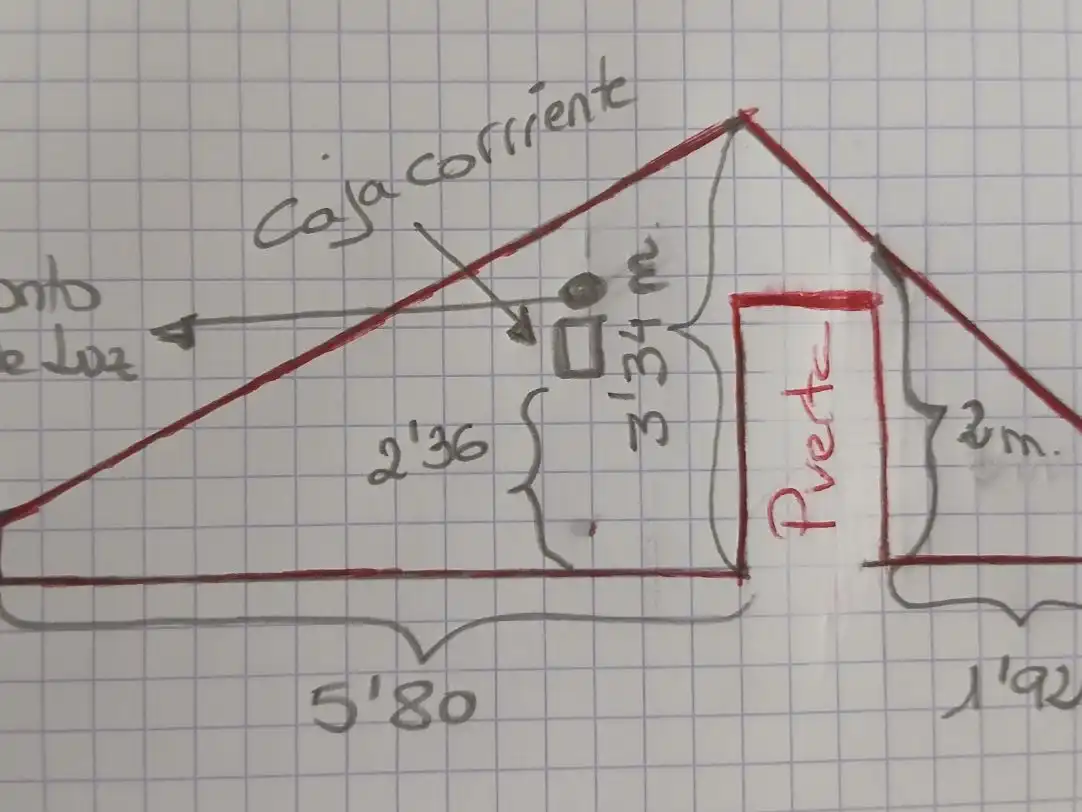 Caja corriente
onto
e Luz
3'34 m.
2'36
Puerta
2 m.
5'80
1'92